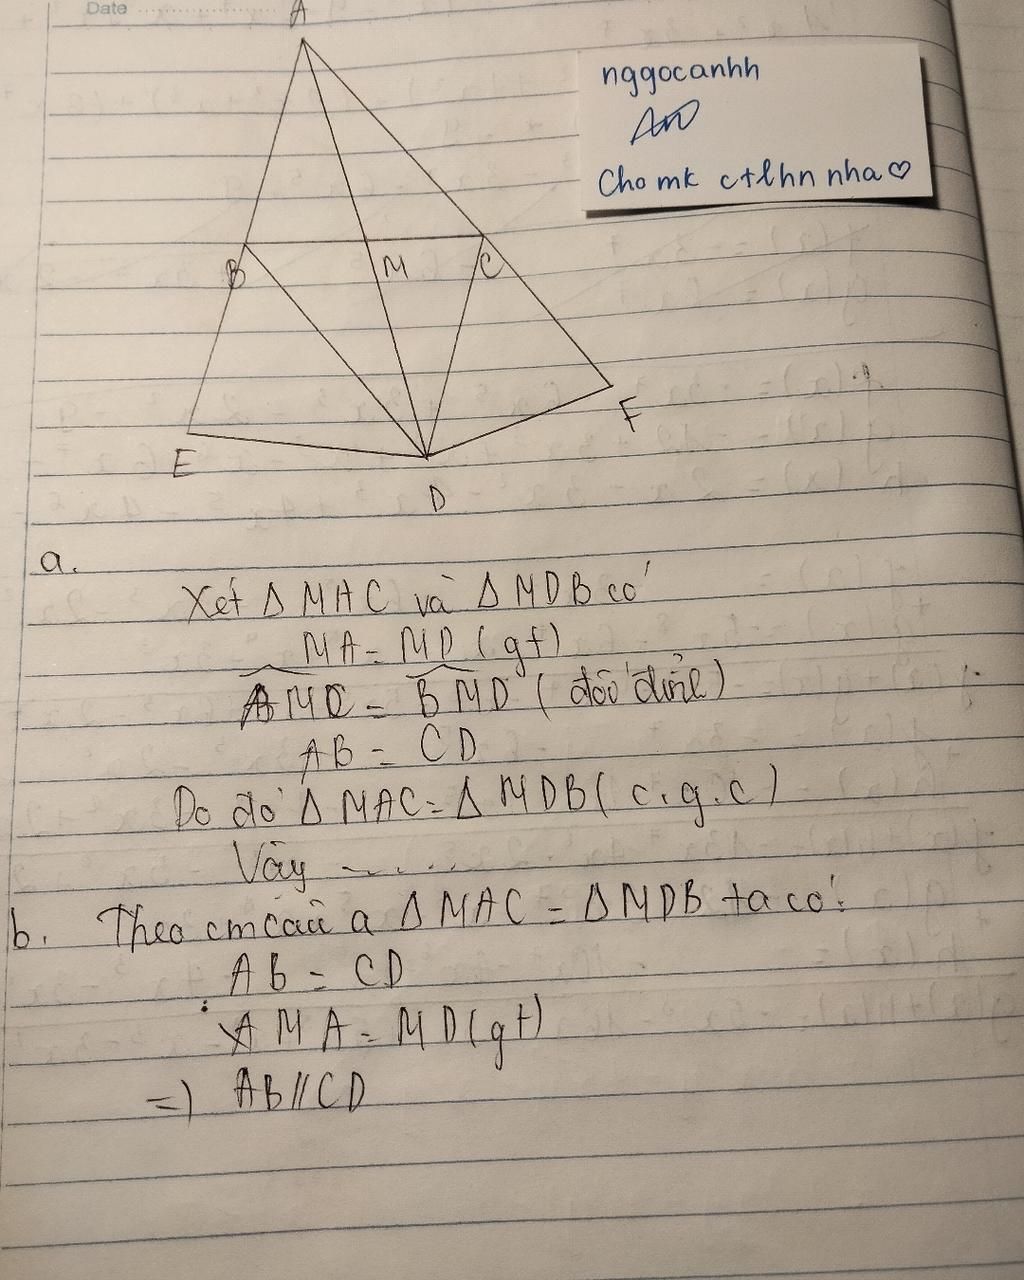 Date
A
nggocanhh
Cho mk ctlhn nha♡
B
M
C
F
E
D
a.
Xét Δ MAC và Δ MDB có
MA = MD (gt)
AMC = BMD (đối đỉnh)
AB = CD
Do đó Δ MAC = Δ MDB ( c.g.c)
Vậy .......
b. Theo cm câu a Δ MAC = Δ MDB ta có:
AB = CD
MA = MD (gt)
=) AB // CD